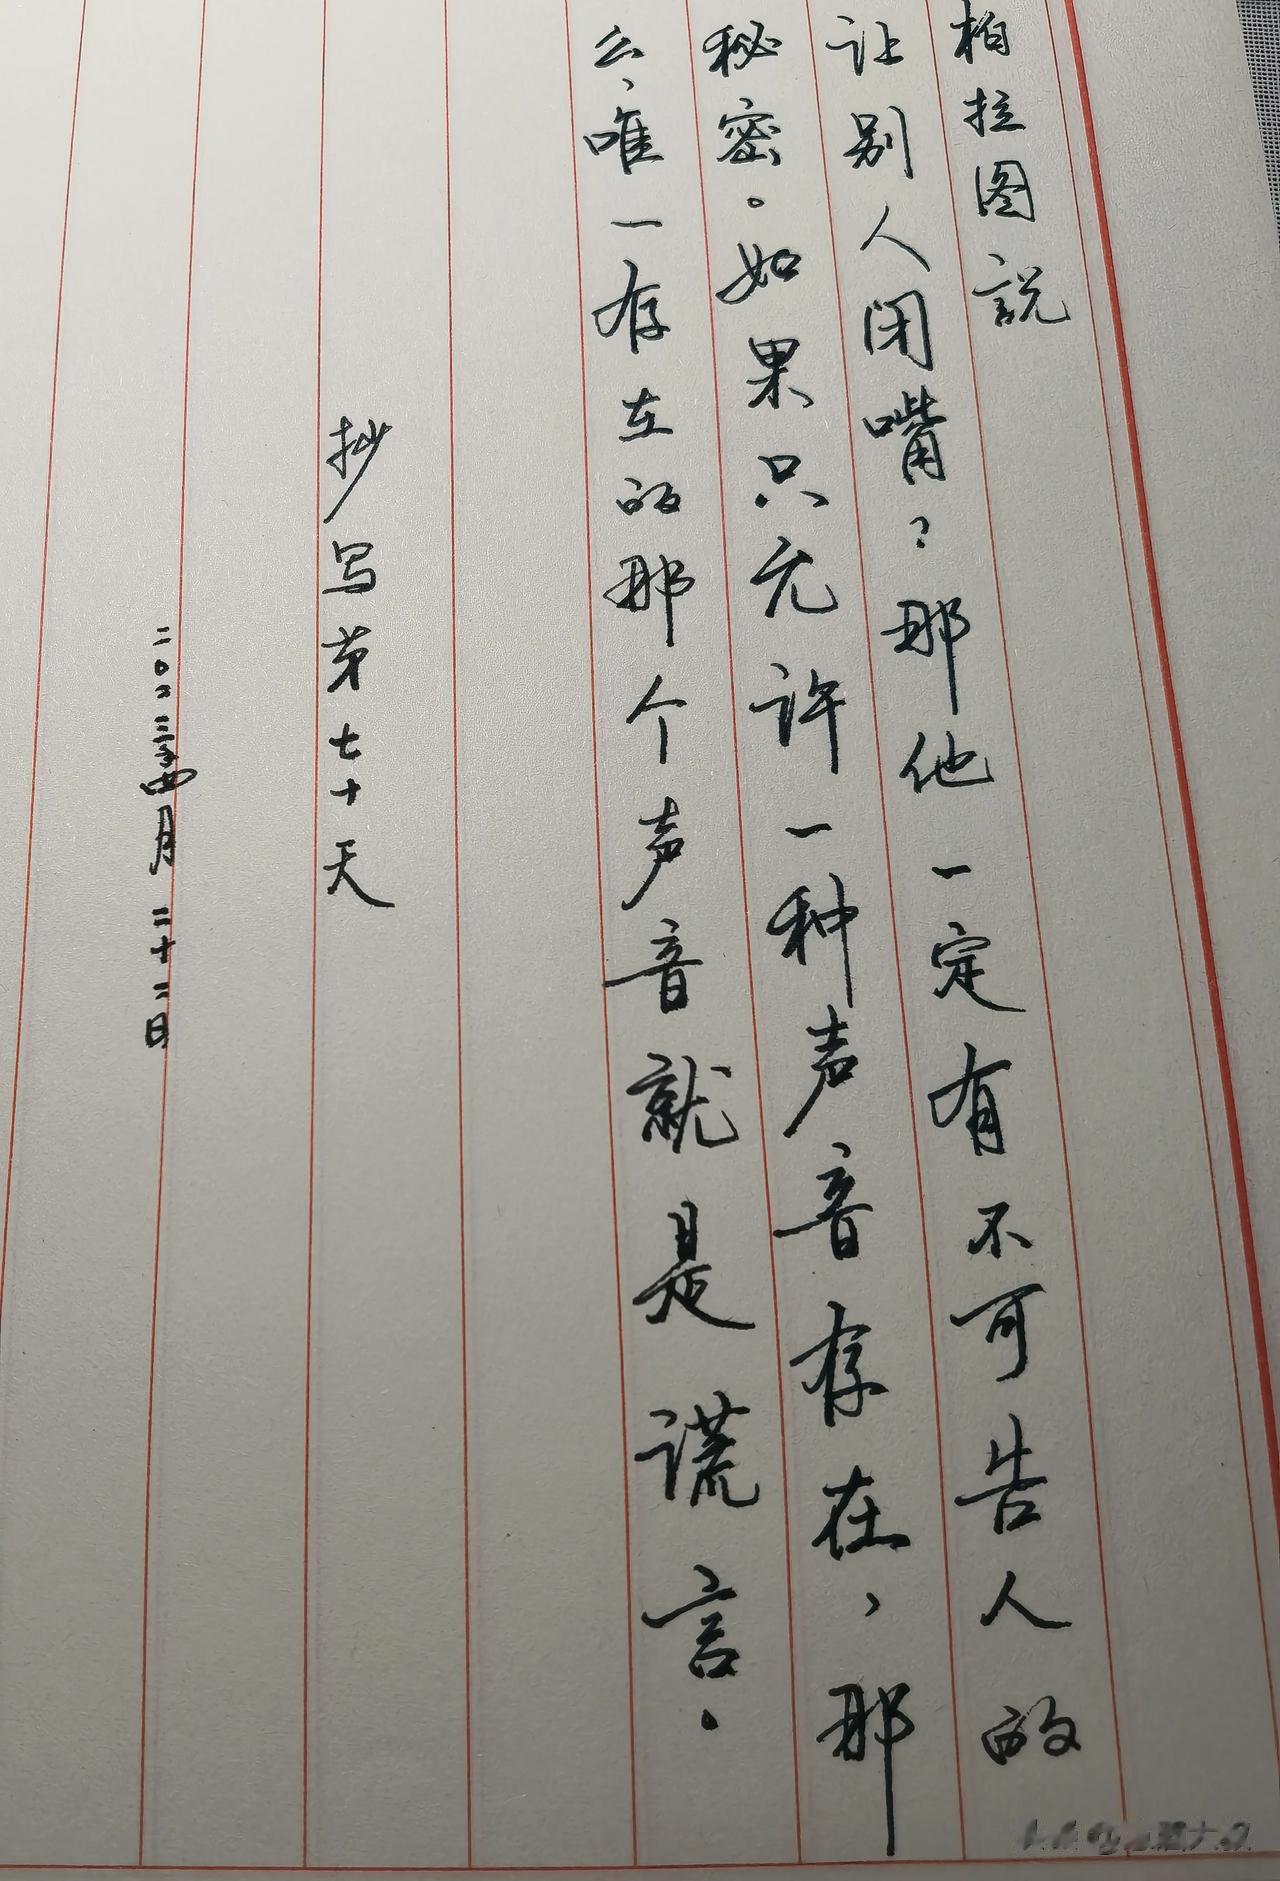 柏拉图説
让别人闭嘴？那他一定有不可告人的
秘密。如果只允许一种声音存在，那
么，唯一存在的那个声音就是谎言。
抄写第七十天
二〇二三年四月二十二日